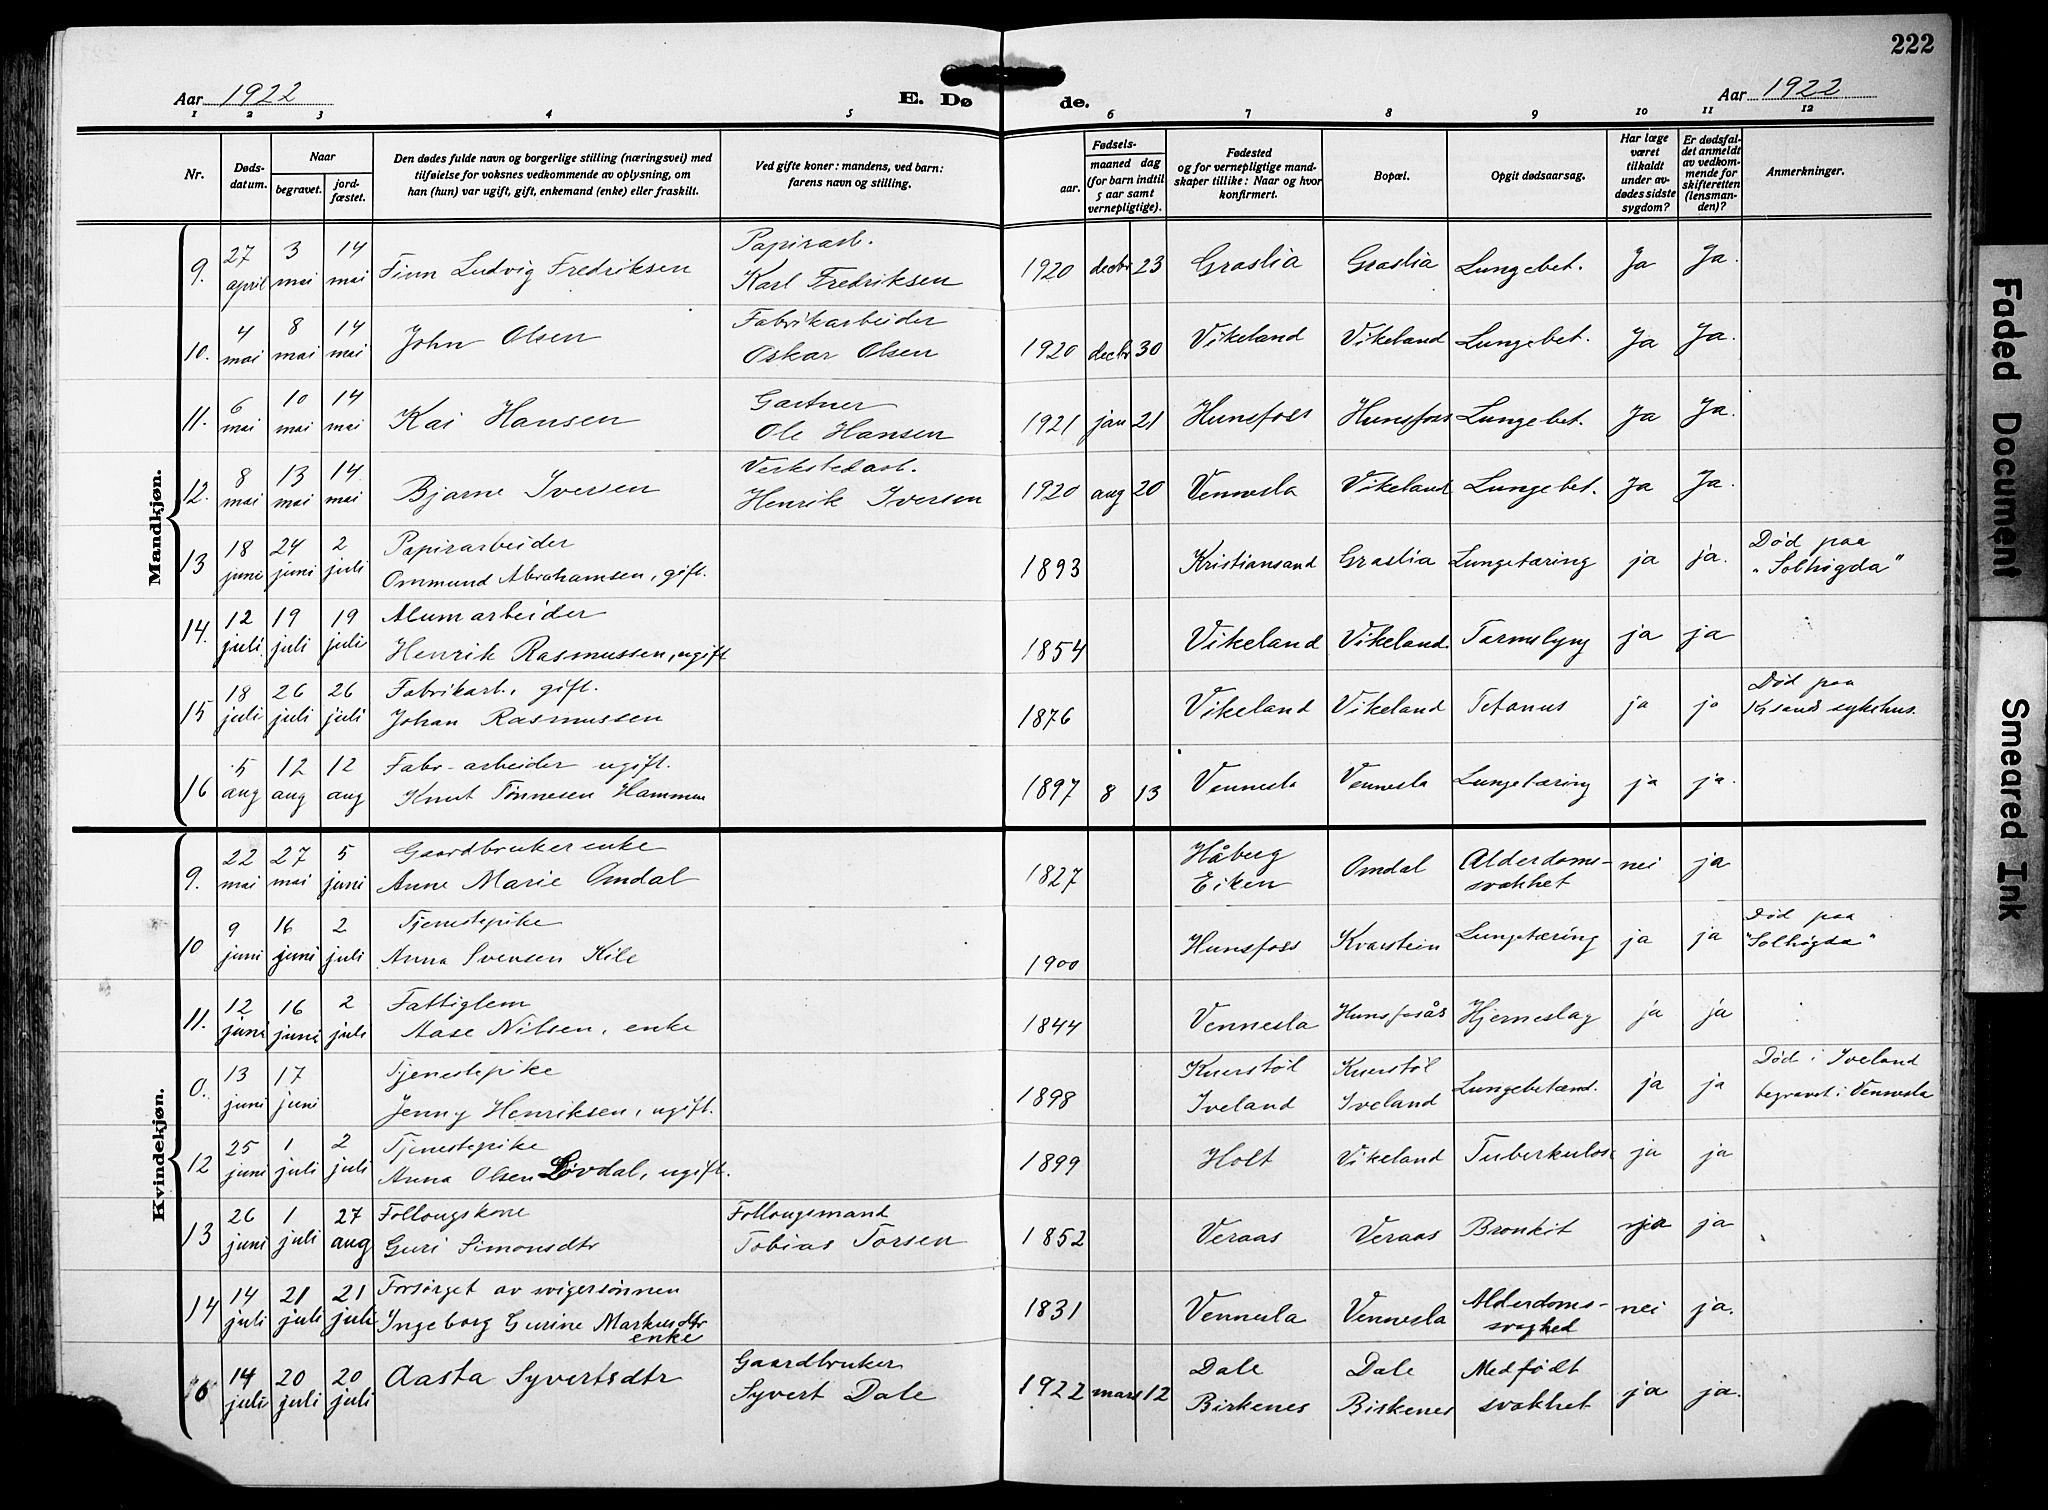 222
Aar 1922
E. Dø
de.
Aar 1922
1 2 3 4 5 6 7 8 9 10 11 12
Nr.
Døds-
datum.
Naar
begravet.
jord-
fæstet.
Den dødes fulde navn og borgerlige stilling (næringsvei) med
tilføielse for voksnes vedkommende av oplysning, om
han (hun) var ugift, gift, enkemand (enke) eller fraskilt.
Ved gifte koner: mandens, ved barn:
farens navn og stilling.
Fødsels-
aar.
maaned dag
(for barn indtil
5 aar samt
vernepligtige).
Fødested
og for vernepligtige mand-
skaper tillike: Naar og hvor
konfirmert.
Bopæl.
Opgit dødsaarsag.
Har læge
været
tilkaldt
under av-
dødes sidste
sygdom?
Er dødsfal-
det anmeldt
av vedkom-
mende for
skifteretten
(lensman-
den)?
Anmerkninger.
Mandkjøn.
9. 27 april 3 mai 14 mai Finn Ludvig Fredriksen Papirarb. Karl Fredriksen 1920 decbr 23 Graslia Graslia Lungebet. Ja Ja.
10. 4 mai 8 mai 14 mai John Olsen Fabrikarbeider Oskar Olsen 1920 decbr 30 Vikeland Vikeland Lungebet. Ja Ja.
11. 6 mai 10 mai 14 mai Kai Hansen Gartner Ole Hansen 1921 jan 21 Hunsfoss Hunsfoss Lungebet. Ja Ja.
12. 8 mai 13 mai 14 mai Bjarne Iversen Verkstedarb. Henrik Iversen 1920 aug 20 Vennesla Vikeland Lungebet. Ja Ja.
13 18 juni 24 juni 2 juli Papirarbeider Ommund Abrahamsen, gift. 1893 Kristiansand Graslia Lungetæring ja ja. Død paa "Solhøgda"
14. 12 juli 19 juli 19 juli Alumarbeider Henrik Rasmussen, ugift 1854 Vikeland Vikeland Tarmslyng ja ja
15 18 juli 26 juli 26 juli Fabrikarb., gift. Johan Rasmussen 1876 Vikeland Vikeland Tetanus ja ja Død paa Krsands sykehus.
16 5 aug 12 aug 12 aug Fabr-arbeider ugift. Knut Tønnesen Hammen 1897 8 13 Vennesla Vennesla Lungetæring ja ja.
Kvindekjøn.
9. 22 mai 27 mai 5 juni Gaardbrukerenke Anne Marie Omdal 1827 Håberg Eiken Omdal Alderdoms-svakhet nei ja
10 9 juni 16 juni 2 juli Tjenestepike Anna Svensen Kile 1900 Hunsfoss Kvarstein Lungetæring ja ja Død paa "Solhøgda"
11. 12 juni 16 juni 2 juli Fattiglem Aase Nilsen, enke 1844 Vennesla Hunsfosås Hjerneslag ja ja
0. 13 juni 17 juni Tjenestepike Jenny Henriksen, ugift. 1898 Kuerstøl Iveland Kuerstøl Iveland Lungebetænd. ja ja Død i Iveland begravet i Vennesla
12 25 juni 1 juli 2 juli Tjenestepike Anna Olsen Løvdal, ugift. 1899 Holt Vikeland Tuberkulose ja ja
13 26 juni 1 juli 27 aug Follougskone Guri Simonsdtr Follougsmand Tobias Torsen 1852 Veraas Veraas Bronkit ja ja
14 14 juli 21 juli 21 juli Forsørget av svigersønnen Ingeborg Gurine Markusdtr enke 1831 Vennesla Vennesla Alderdoms-svaghed nei ja.
14 juli 20 juli 20 juli Aasta Syvertsdtr Gaardbruker Syvert Dale 1922 mars 12 Dale Birkenes Dale Birkenes Medfødt svakhet ja ja.
Faded Document
Smeared Ink